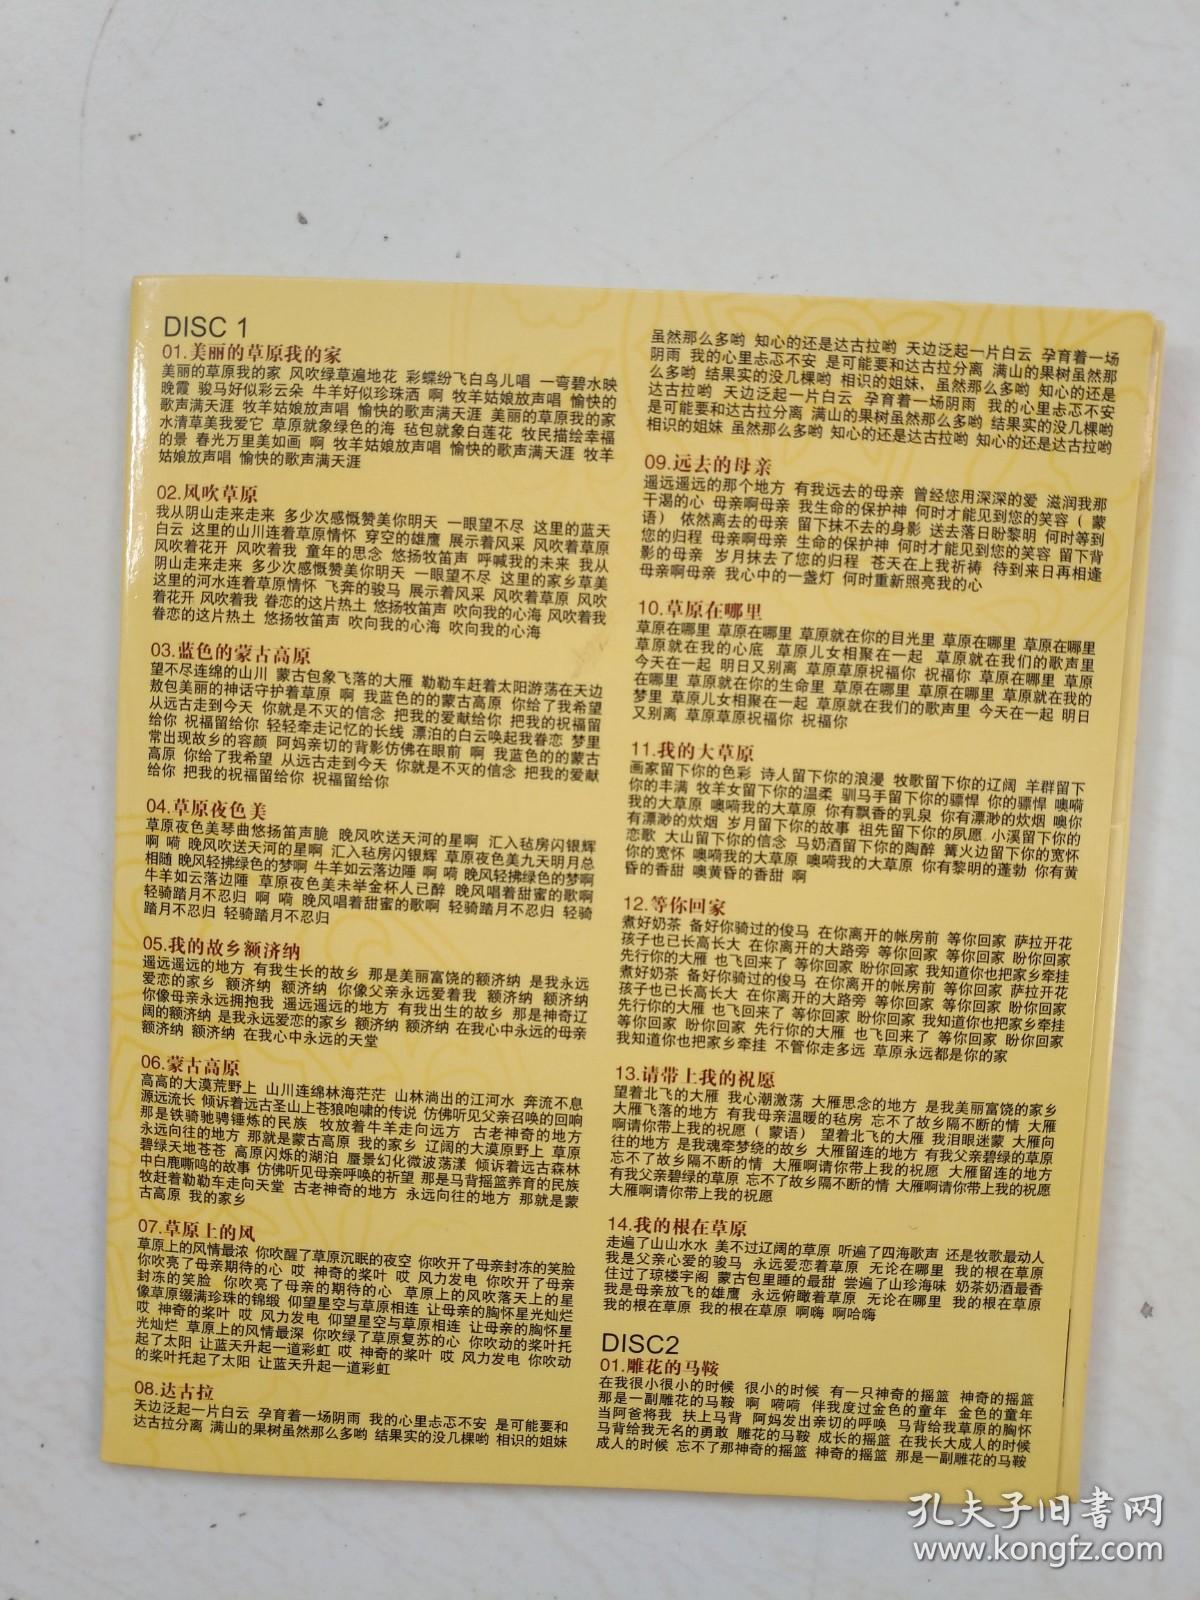 DISC 1
01.美丽的草原我的家
美丽的草原我的家 风吹绿草遍地花 彩蝶纷飞白鸟儿唱 一弯碧水映
晚霞 骏马好似彩云朵 牛羊好似珍珠洒 啊 牧羊姑娘放声唱 愉快的
歌声满天涯 牧羊姑娘放声唱 愉快的歌声满天涯 美丽的草原我的家
水清草美我爱它 草原就象绿色的海 毡包就象白莲花 牧民描绘幸福
的景 春光万里美如画 啊 牧羊姑娘放声唱 愉快的歌声满天涯 牧羊
姑娘放声唱 愉快的歌声满天涯
02.风吹草原
我从阴山走来走来 多少次感慨赞美你明天 一眼望不尽 这里的蓝天
白云 这里的山川连着草原情怀 穿空的雄鹰 展示着风采 风吹着草原
风吹着花开 风吹着我 童年的思念 悠扬牧笛声 呼喊我的未来 我从
阴山走来走来 多少次感慨赞美你明天 一眼望不尽 这里的家乡草美
这里的河水连着草原情怀 飞奔的骏马 展示着风采 风吹着草原 风吹
着花开 风吹着我 眷恋的这片热土 悠扬牧笛声 吹向我的心海 风吹着我
眷恋的这片热土 悠扬牧笛声 吹向我的心海 吹向我的心海
03.蓝色的蒙古高原
望不尽连绵的山川 蒙古包象飞落的大雁 勒勒车赶着太阳游荡在天边
敖包美丽的神话守护着草原 啊 我蓝色的的蒙古高原 你给了我希望
从远古走到今天 你就是不灭的信念 把我的爱献给你 把我的祝福留
给你 祝福留给你 轻轻牵走记忆的长线 漂泊的白云唤起我眷恋 梦里
常出现故乡的容颜 阿妈亲切的背影仿佛在眼前 啊 我蓝色的的蒙古
高原 你给了我希望 从远古走到今天 你就是不灭的信念 把我的爱献
给你 把我的祝福留给你 祝福留给你
04.草原夜色美
草原夜色美琴曲悠扬笛声脆 晚风吹送天河的星啊 汇入毡房闪银辉
啊 嗬 晚风吹送天河的星啊 汇入毡房闪银辉 草原夜色美九天明月总
相随 晚风轻拂绿色的梦啊 牛羊如云落边陲 啊 嗬 晚风轻拂绿色的梦啊
牛羊如云落边陲 草原夜色美未举金杯人已醉 晚风唱着甜蜜的歌啊
轻骑踏月不忍归 啊 嗬 晚风唱着甜蜜的歌啊 轻骑踏月不忍归 轻骑
踏月不忍归 轻骑踏月不忍归
05.我的故乡额济纳
遥远遥远的地方 有我生长的故乡 那是美丽富饶的额济纳 是我永远
爱恋的家乡 额济纳 额济纳 你像父亲永远爱着我 额济纳 额济纳
你像母亲永远拥抱我 遥远遥远的地方 有我出生的故乡 那是神奇辽
阔的额济纳 是我永远爱恋的家乡 额济纳 额济纳 在我心中永远的母亲
额济纳 额济纳 在我心中永远的天堂
06.蒙古高原
高高的大漠荒野上 山川连绵林海茫茫 山林淌出的江河水 奔流不息
源远流长 倾诉着远古圣山上苍狼咆啸的传说 仿佛听见父亲召唤的回响
那是铁骑驰骋锤炼的民族 牧放着牛羊走向远方 古老神奇的地方
永远向往的地方 那就是蒙古高原 我的家乡 辽阔的大漠原野上 草原
碧绿天地苍苍 高原闪烁的湖泊 蜃景幻化微波荡漾 倾诉着远古森林
中白鹿嘶鸣的故事 仿佛听见母亲呼唤的祈望 那是马背摇篮养育的民族
牧赶着勒勒车走向天堂 古老神奇的地方 永远向往的地方 那就是蒙
古高原 我的家乡
07.草原上的风
草原上的风情最浓 你吹醒了草原沉眠的夜空 你吹开了母亲封冻的笑脸
你吹亮了母亲期待的心 哎 神奇的桨叶 哎 风力发电 你吹开了母亲
封冻的笑脸 你吹亮了母亲的期待的心 草原上的风吹落天上的星
像草原缀满珍珠的锦缎 仰望星空与草原相连 让母亲的胸怀星光灿烂
哎 神奇的桨叶 哎 风力发电 仰望星空与草原相连 让母亲的胸怀星
光灿烂 草原上的风情最深 你吹绿了草原复苏的心 你吹动的桨叶托
起了太阳 让蓝天升起一道彩虹 哎 神奇的桨叶 哎 风力发电 你吹动
的桨叶托起了太阳 让蓝天升起一道彩虹
08.达古拉
天边泛起一片白云 孕育着一场阴雨 我的心里忐忑不安 是可能要和
达古拉分离 满山的果树虽然那么多哟 结果实的没几棵哟 相识的姐妹
虽然那么多哟 知心的还是达古拉哟 天边泛起一片白云 孕育着一场
阴雨 我的心里忐忑不安 是可能要和达古拉分离 满山的果树虽然那
么多哟 结果实的没几棵哟 相识的姐妹、虽然那么多哟 知心的还是
达古拉哟 天边泛起一片白云 孕育着一场阴雨 我的心里忐忑不安
是可能要和达古拉分离 满山的果树虽然那么多哟 结果实的没几棵哟
相识的姐妹 虽然那么多哟 知心的还是达古拉哟 知心的还是达古拉哟
09.远去的母亲
遥远遥远的那个地方 有我远去的母亲 曾经您用深深的爱 滋润我那
干渴的心 母亲啊母亲 我生命的保护神 何时才能见到您的笑容（蒙
语） 依然离去的母亲 留下抹不去的身影 送去落日盼黎明 何时等到
您的归程 母亲啊母亲 生命的保护神 何时才能见到您的笑容 留下背
影的母亲 岁月抹去了您的归程 苍天在上我祈祷 待到来日再相逢
母亲啊母亲 我心中的一盏灯 何时重新照亮我的心
10.草原在哪里
草原在哪里 草原在哪里 草原就在你的目光里 草原在哪里 草原在哪里
草原就在我的心底 草原儿女相聚在一起 草原就在我们的歌声里
今天在一起 明日又别离 草原草原祝福你 祝福你 草原在哪里 草原
在哪里 草原就在你的生命里 草原在哪里 草原在哪里 草原就在我的
梦里 草原儿女相聚在一起 草原就在我们的歌声里 今天在一起 明日
又别离 草原草原祝福你 祝福你
11.我的大草原
画家留下你的色彩 诗人留下你的浪漫 牧歌留下你的辽阔 羊群留下
你的丰满 牧羊女留下你的温柔 驯马手留下你的骠悍 你的骠悍 噢嗬
我的大草原 噢嗬我的大草原 你有飘香的乳泉 你有漂渺的炊烟 噢你
有漂渺的炊烟 岁月留下你的故事 祖先留下你的夙愿 小溪留下你的
恋歌 大山留下你的信念 马奶酒留下你的陶醉 篝火边留下你的宽怀
你的宽怀 噢嗬我的大草原 噢嗬我的大草原 你有黎明的蓬勃 你有黄
昏的香甜 噢黄昏的香甜 啊
12.等你回家
煮好奶茶 备好你骑过的俊马 在你离开的帐房前 等你回家 萨拉开花
孩子也已长高长大 在你离开的大路旁 等你回家 等你回家 盼你回家
先行你的大雁 也飞回来了 等你回家 盼你回家 我知道你也把家乡牵挂
煮好奶茶 备好你骑过的俊马 在你离开的帐房前 等你回家 萨拉开花
孩子也已长高长大 在你离开的大路旁 等你回家 等你回家 盼你回家
先行你的大雁 也飞回来了 等你回家 盼你回家 我知道你也把家乡牵挂
等你回家 盼你回家 先行你的大雁 也飞回来了 等你回家 盼你回家
我知道你也把家乡牵挂 不管你走多远 草原永远都是你的家
13.请带上我的祝愿
望着北飞的大雁 我心潮激荡 大雁思念的地方 是我美丽富饶的家乡
大雁飞落的地方 有我母亲温暖的毡房 忘不了故乡隔不断的情 大雁
啊请你带上我的祝愿（蒙语） 望着北飞的大雁 我泪眼迷蒙 大雁向
往的地方 是我魂牵梦绕的故乡 大雁留连的地方 有我父亲碧绿的草原
忘不了故乡隔不断的情 大雁啊请你带上我的祝愿 大雁留连的地方
有我父亲碧绿的草原 忘不了故乡隔不断的情 大雁啊请你带上我的祝愿
大雁啊请你带上我的祝愿
14.我的根在草原
走遍了山山水水 美不过辽阔的草原 听遍了四海歌声 还是牧歌最动人
我是父亲心爱的骏马 永远爱恋着草原 无论在哪里 我的根在草原
住过了琼楼宇阁 蒙古包里睡的最甜 尝遍了山珍海味 奶茶奶酒最香
我是母亲放飞的雄鹰 永远俯瞰着草原 无论在哪里 我的根在草原
我的根在草原 我的根在草原 啊嗨 啊哈嗨
DISC2
01.雕花的马鞍
在我很小很小的时候 很小的时候 有一只神奇的摇篮 神奇的摇篮
那是一副雕花的马鞍 啊 嗬嗬 伴我度过金色的童年 金色的童年
当阿爸将我 扶上马背 阿妈发出亲切的呼唤 马背给我草原的胸怀
马背给我无名的勇敢 雕花的马鞍 成长的摇篮 在我长大成人的时候
成人的时候 忘不了那神奇的摇篮 神奇的摇篮 那是一副雕花的马鞍
孔夫子旧书网
www.kongfz.com